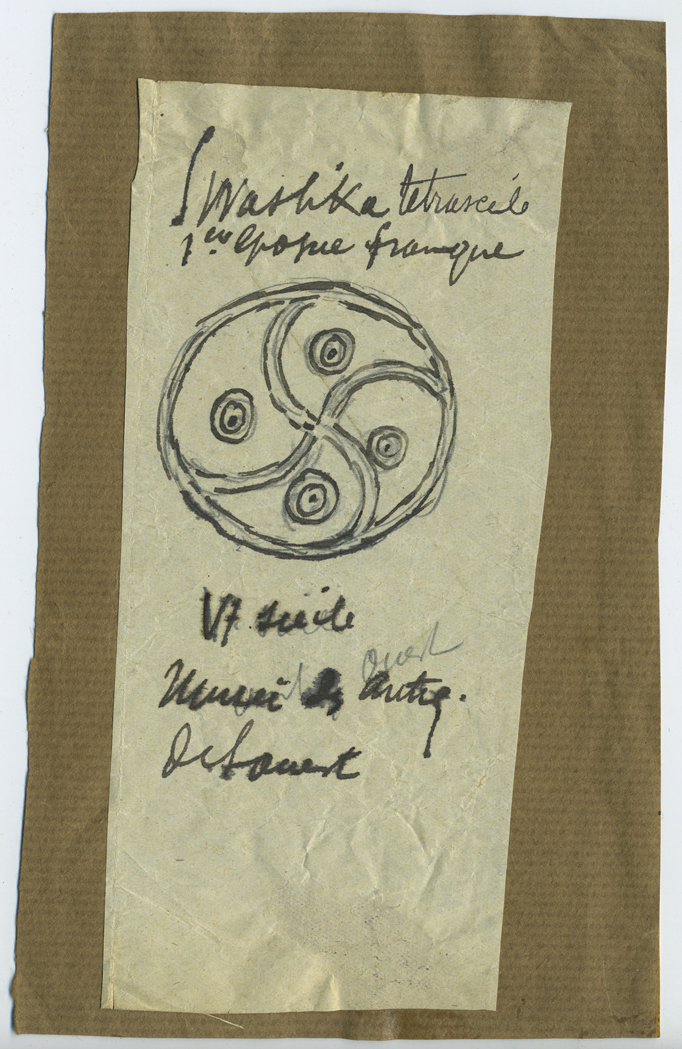 Swastika tetrascèle
1ère époque franque
VI siècle
Ouest
Musée des Antiq.
de l'ouest